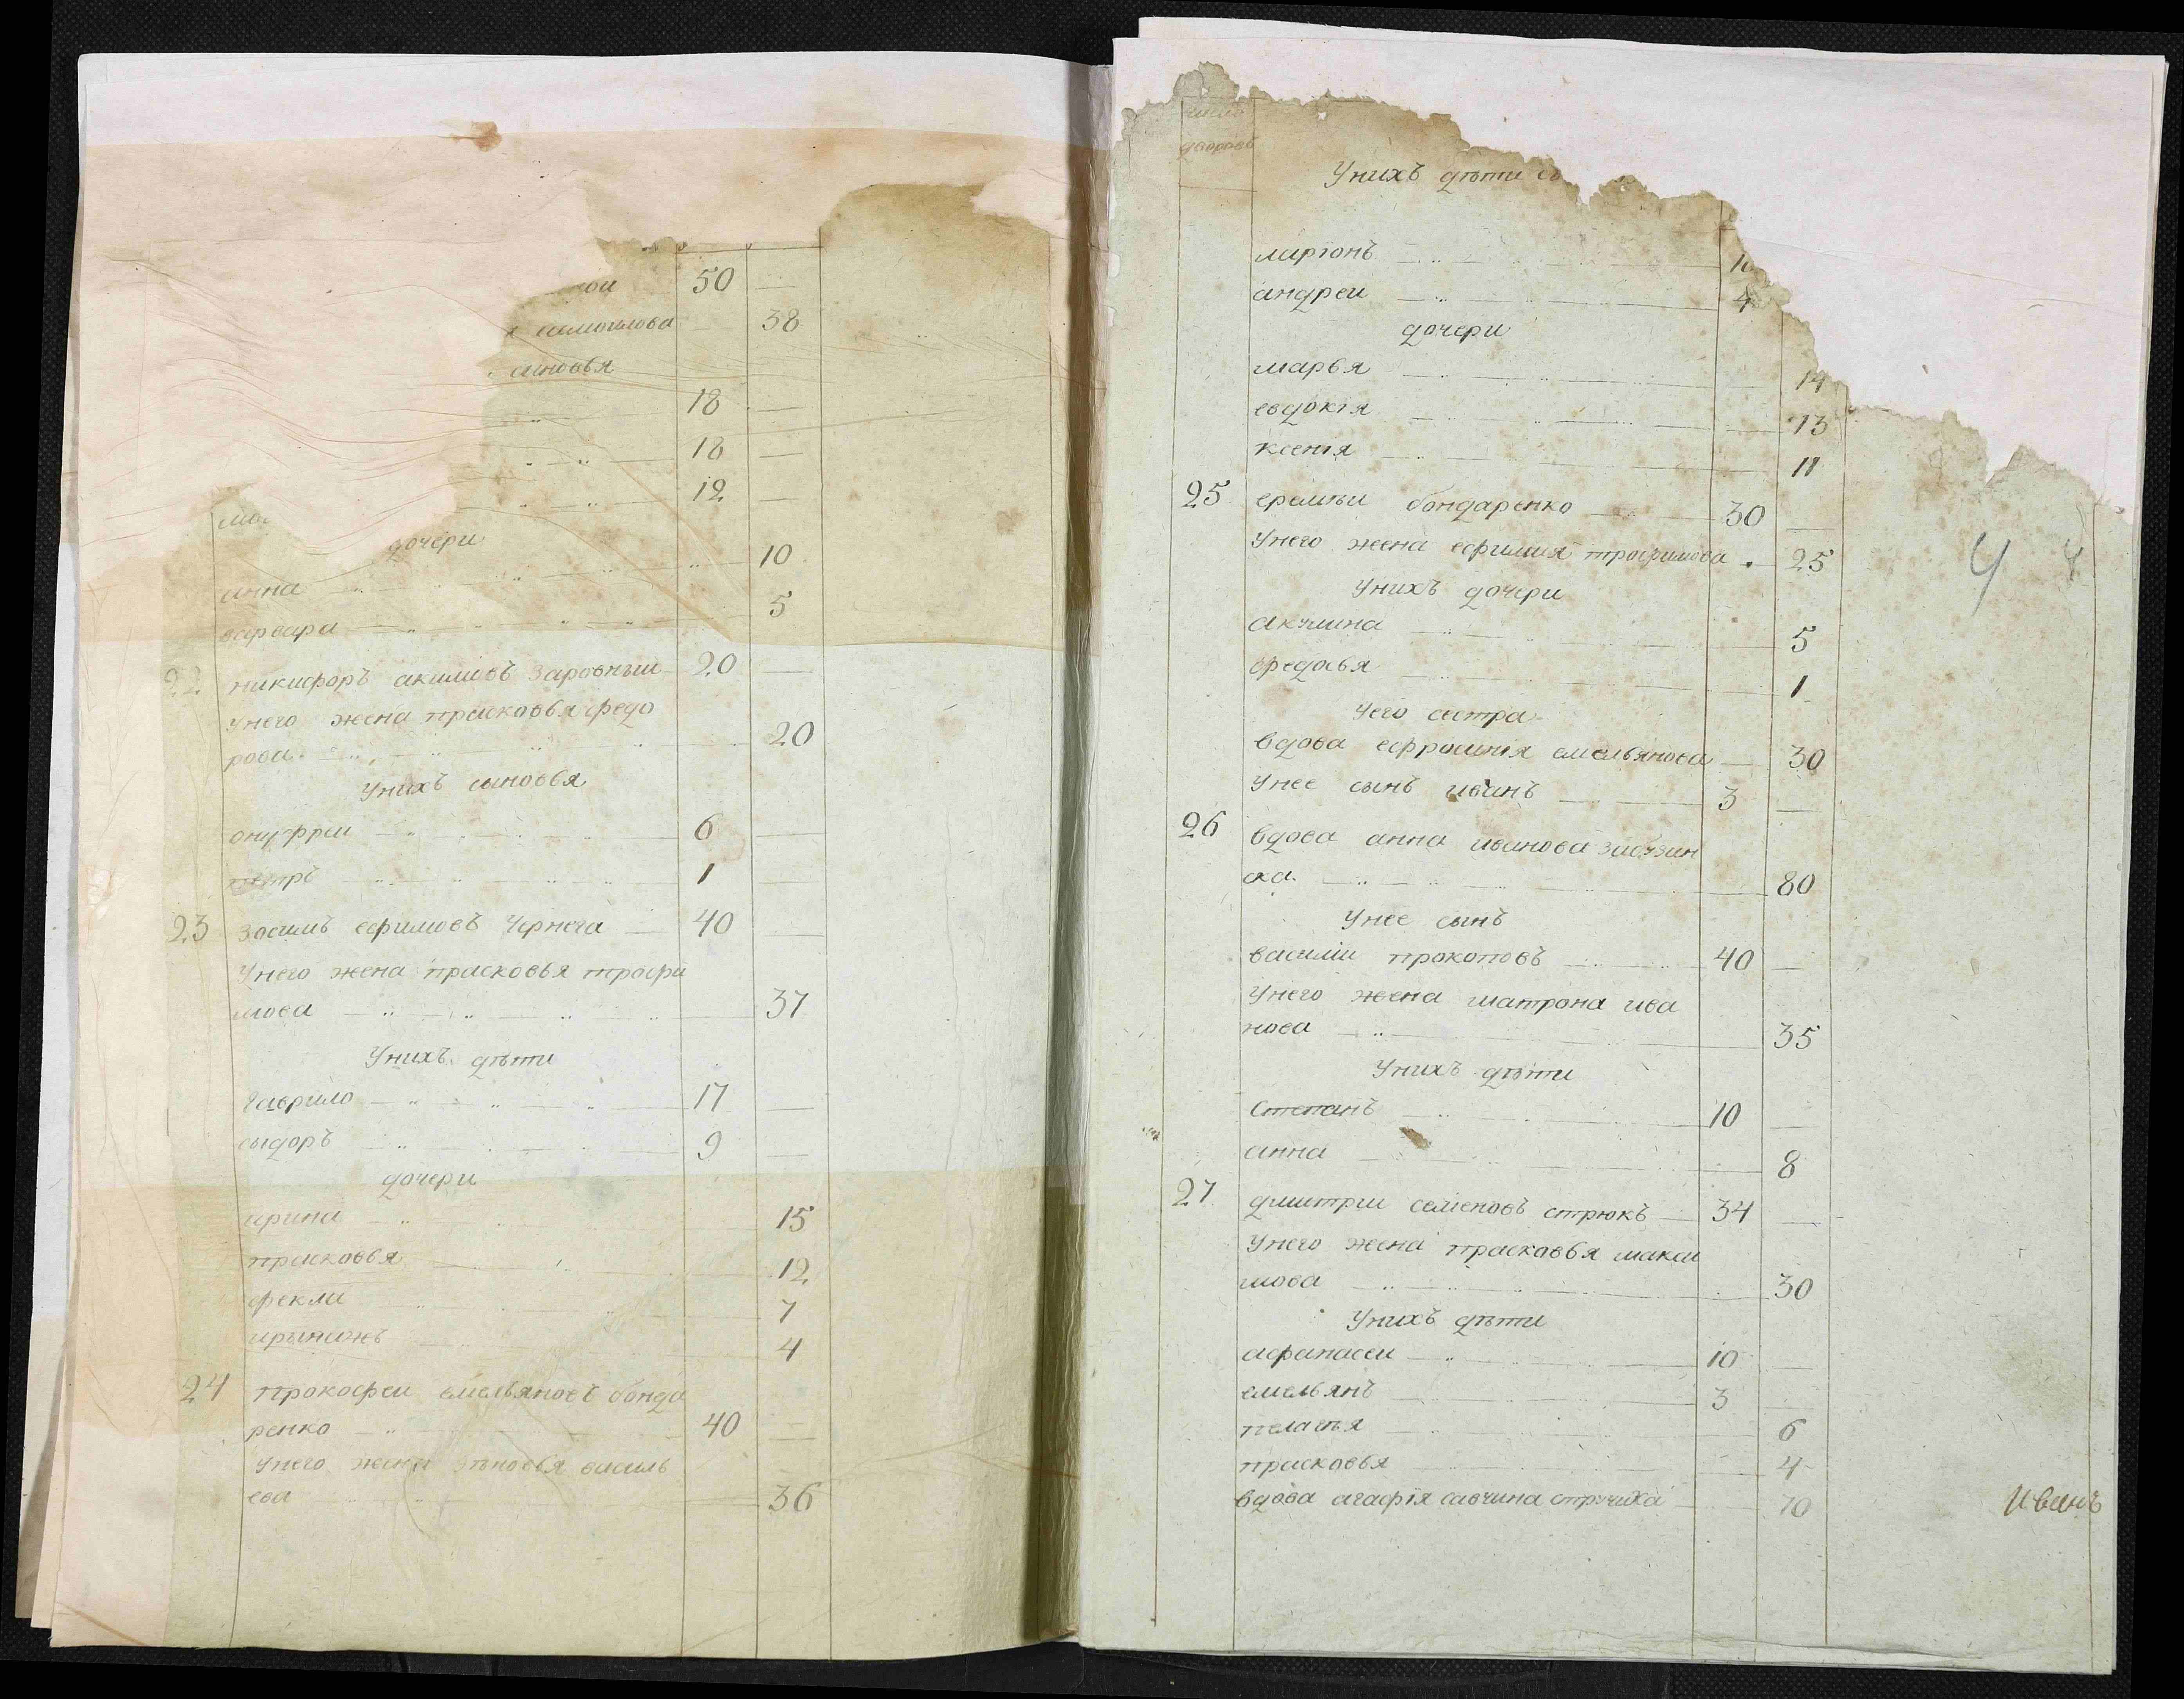 50 —
самоилова — 38
сыновья
18 —
18 —
12 —
дочери
анна 10
варвара 5
22 никифоръ акимовъ Заровныи 20 —
Унего жена прасковья федо
рова 20
Унихъ сыновья
онуфреи 6 —
петръ 1 —
23 Зосимъ ефимовъ Чернега 40 —
Унего жена прасковья трофи
мова 37
Унихъ дѣти
гаврило 17 —
сыдоръ 9 —
дочери
ирина 15
прасковья 12
фекла 7
4
24 Прокофеи емельяновъ бонда
ренко 40 —
Унего жена зѣновья василь
ева 36
число
дворовъ
Унихъ дѣти
ларіонъ
андреи 4
дочери
марья 14
евдокія 13
ксенія 11
25 еремѣи бондаренко 30 —
Унего жена ефимия трофимова 25
Унихъ дочери
акулина 5
федосья 1
Уего сестра
Вдова ефросинія емельянова — 30
Унее сынъ иванъ 3 —
26 Вдова анна иванова
ска 80
Унее сынъ
василіи прокоповъ 40 —
Унего жена матрона ива
нова 35
Унихъ дѣти
Степанъ 10 —
анна 8
27 димитріи семеновъ стрюкъ 34 —
Унего жена прасковья макси
мова 30
Унихъ дѣти
афанасеи 10 —
емельянъ 3 —
пелагѣя 6
прасковья 4
Вдова агафія савчина стручиха 70
Иванъ
4 4